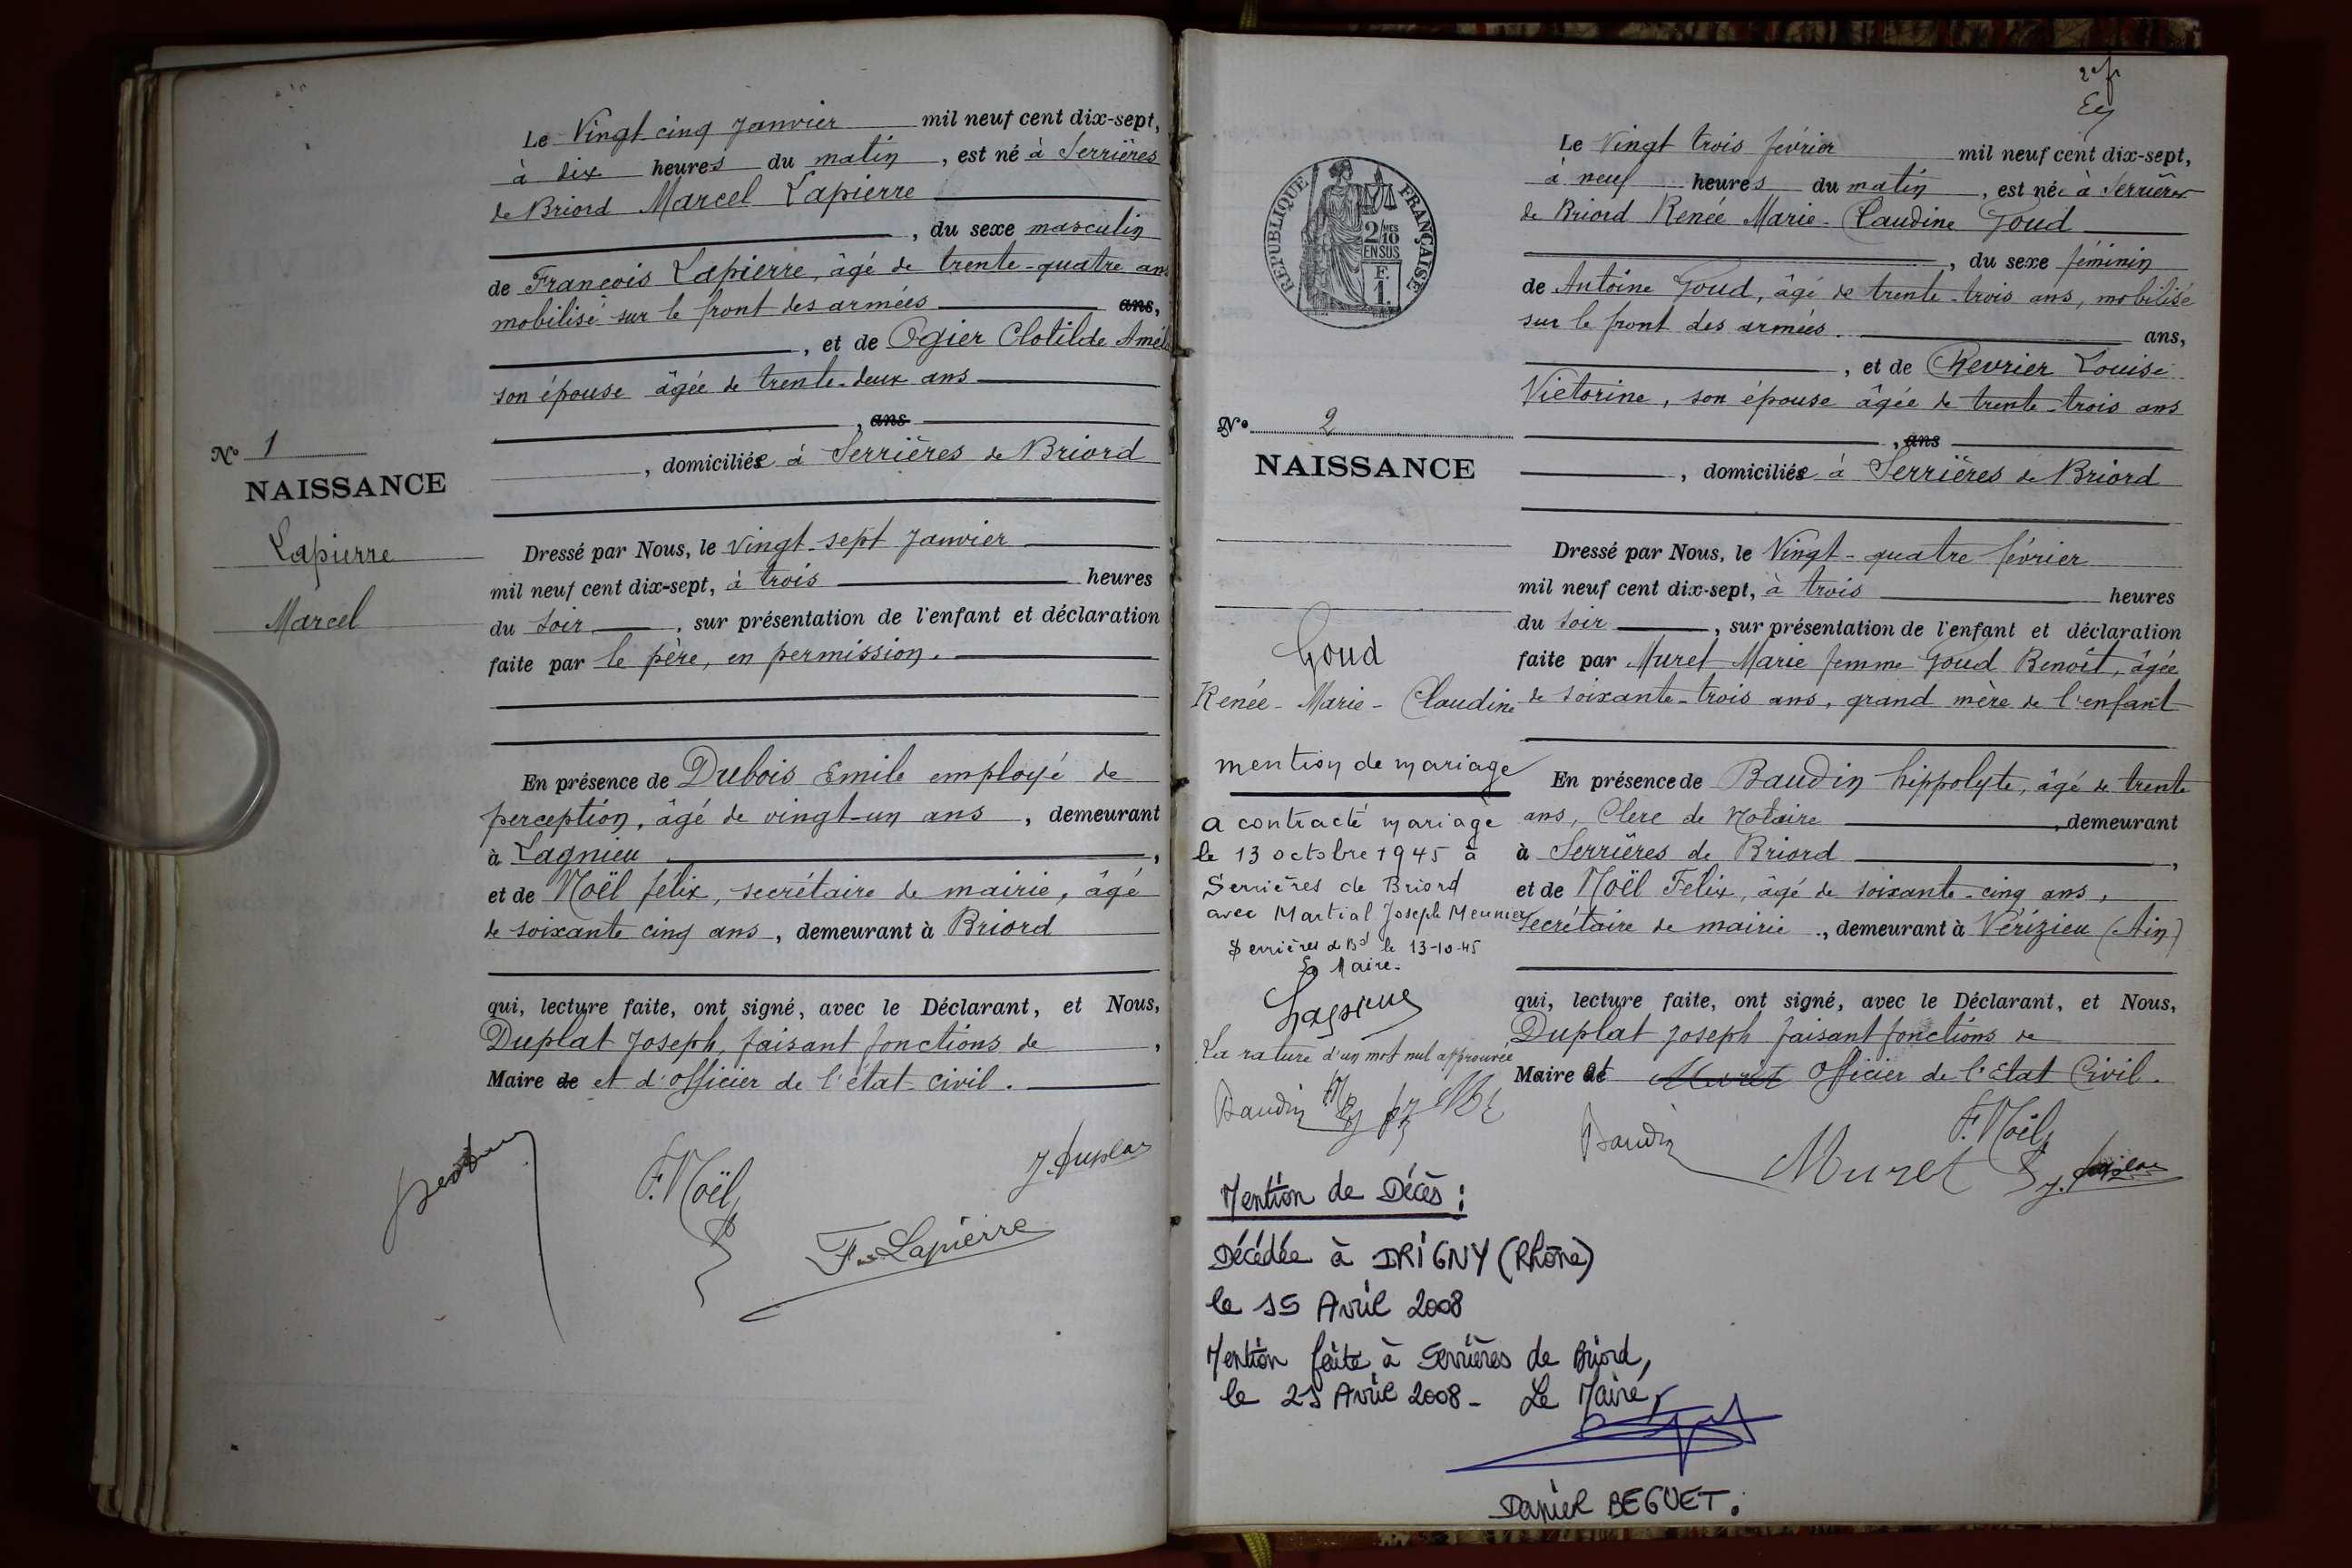 Le Vingt cinq Janvier mil neuf cent dix-sept,
à dix heures du matin, est né à Serrières
de Briord Marcel Lapierre
, du sexe masculin
de François Lapierre, âgé de trente-quatre ans
mobilisé sur le front des armées ans,
, et de Ogier Clotilde Amél
son épouse âgée de trente-deux ans
, ans
, domiciliés à Serrières de Briord
N° 1
NAISSANCE
Lapierre
Marcel
Dressé par Nous, le vingt-sept Janvier
mil neuf cent dix-sept, à trois heures
du soir, sur présentation de l'enfant et déclaration
faite par le père, en permission.
En présence de Dubois Emile employé de
perception, âgé de vingt-un ans, demeurant
à Lagnieu,
et de Noël félix, secrétaire de mairie, âgé
de soixante cinq ans, demeurant à Briord
qui, lecture faite, ont signé, avec le Déclarant, et Nous,
Duplat Joseph, faisant fonctions de,
Maire de et d'officier de l'état-civil.
F. Noël
J. Duplat
F. Lapierre
2e f
REPUBLIQUE FRANÇAISE
2/10 MES
EN SUS
F.
1.
Le Vingt trois février mil neuf cent dix-sept,
à neuf heures du matin, est née à Serrières
de Briord Renée Marie-Claudine Goud
, du sexe féminin
de Antoine Goud, âgé de trente-trois ans, mobilisé
sur le front des armées. ans,
, et de Chevrier Louise
Victorine, son épouse âgée de trente-trois ans
, ans
, domiciliés à Serrières de Briord
N° 2
NAISSANCE
Goud
Renée-Marie-Claudine
Dressé par Nous, le Vingt-quatre février
mil neuf cent dix-sept, à trois heures
du soir, sur présentation de l'enfant et déclaration
faite par Muret Marie femme Goud Benoît, âgée
de soixante-trois ans, grand mère de l'enfant
En présence de Baudin hippolyte, âgé de trente
ans, Clerc de Notaire, demeurant
à Serrières de Briord,
et de Noël Félix, âgé de soixante-cinq ans,
secrétaire de mairie., demeurant à Vérizieu (Ain)
qui, lecture faite, ont signé, avec le Déclarant, et Nous,
Duplat Joseph faisant fonctions de
Maire et Officier de l'Etat Civil.
Baudin
Muret
F. Noël
J. Duplat
mention de mariage
a contracté mariage
le 13 octobre 1945 à
Serrières de Briord
avec Martial Joseph Meunier
Serrières de Bd le 13-10-45
Le Maire.
La rature d'un mot nul approuvée
Baudin
Mention de Décès :
Décédée à IRIGNY (Rhône)
le 15 Avril 2008
Mention faite à Serrières de Briord,
le 21 Avril 2008 - Le Maire,
Daniel BEGUET.